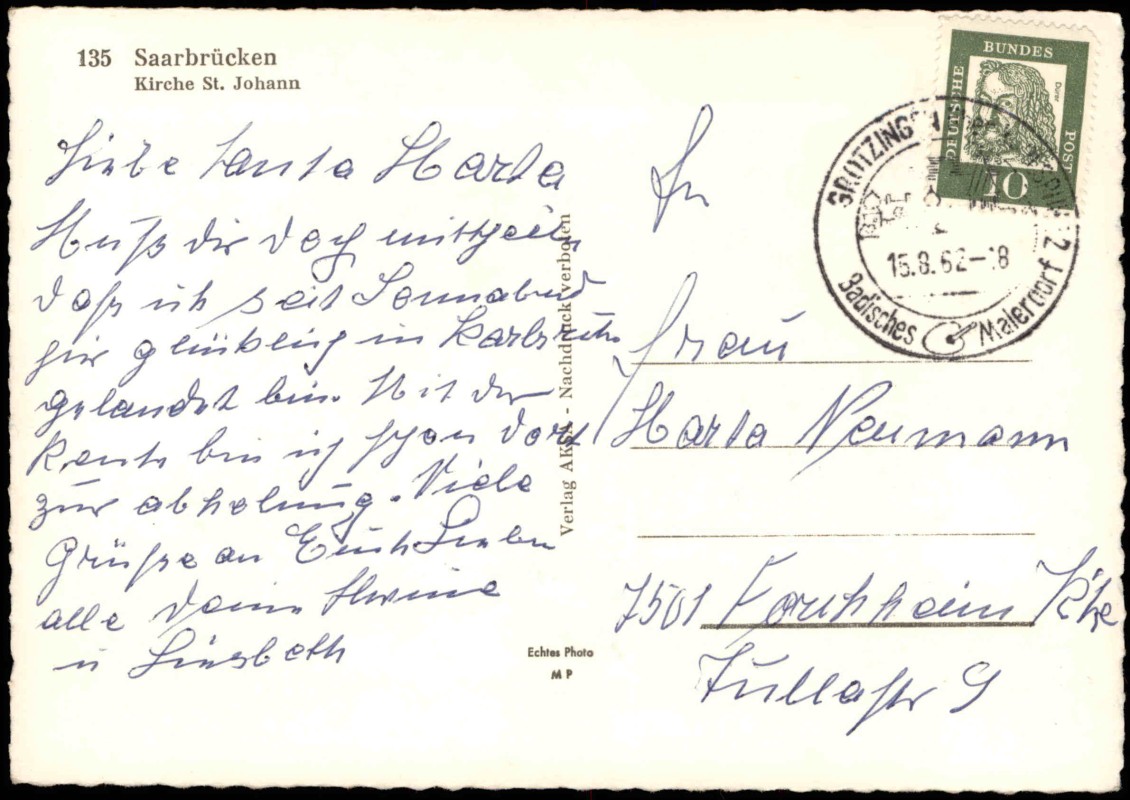 135 Saarbrücken
Kirche St. Johann
Liebe Tante Marta
Muß dir doch mitteilen
daß ich seit Sonnabend
hier glücklich in Karlsruhe
gelandet bin. Mit der
Rente bin ich schon dort
zur abholung. Viele
Grüße an Euch Lieben
alle Deine
u Liesbeth
Verlag AKSA - Nachdruck verboten
Echtes Photo
M P
DEUTSCHE BUNDES POST
Dürer
10
GRÖTZINGEN
15.8.62-18
Badisches Malerdorf
An
Frau
Marta Neumann
7501 Forchheim Khe
Tullastr 9